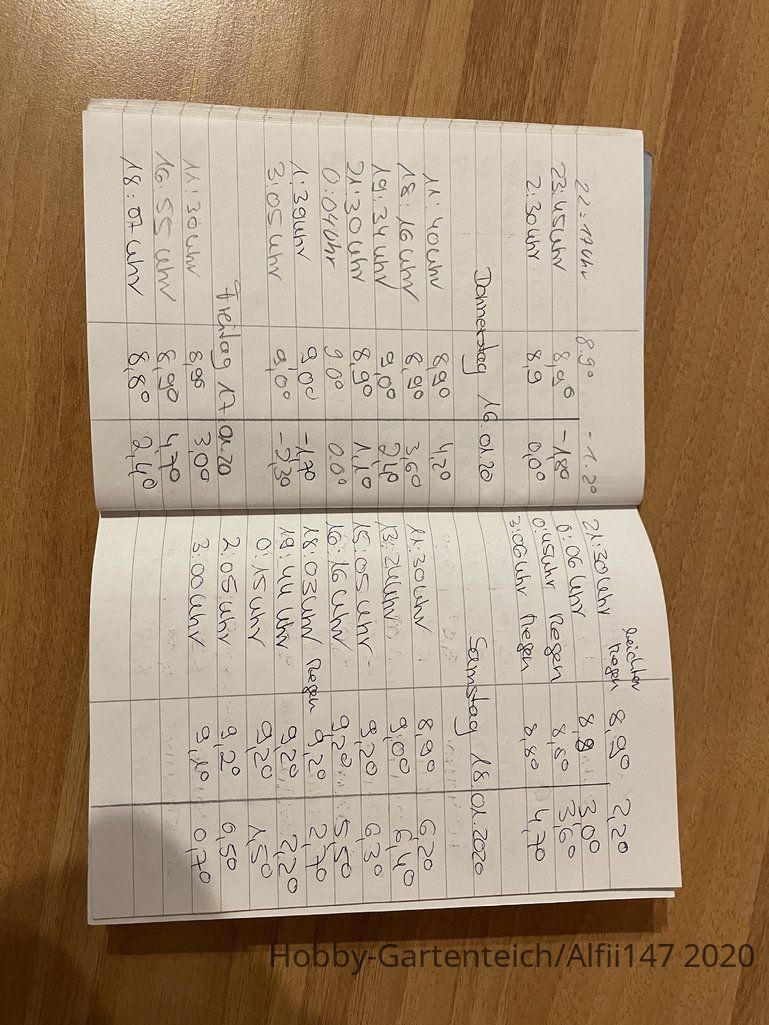 22:17 Uhr 8.9° -1.2°
23:45 Uhr 8,9° -1,8°
2:30 Uhr 8,9 0,0°
Donnerstag 16.01.20
11:40 Uhr 8,9° 4,2°
18:16 Uhr 8,9° 3,6°
19:34 Uhr 9,0° 2,4°
21:30 Uhr 8,9° 1,1°
0:04 Uhr 9.0° 0.0°
1:39 Uhr 9,0° -1,7°
3:05 Uhr 9,0° -2,3°
Freitag 17.01.20
11:30 Uhr 8,9° 3,0°
16:55 Uhr 8,9° 4,7°
18:07 Uhr 8,8° 2,4°
21:30 Uhr leichter Regen 8,9° 2,2°
0:06 Uhr 8,8 3,0°
0:45 Uhr Regen 8,8° 3,6°
3:06 Uhr Regen 8,8° 4,7°
Samstag 18.01.2020
11:30 Uhr 8,9° 6,2°
13:24 Uhr 9,0° 6,4°
15:05 Uhr 9,2° 6,3°
16:16 Uhr 9,2° 5,5°
18:03 Uhr Regen 9,2° 2,7°
19:44 Uhr 9,2° 2,2°
0:15 Uhr 9,2° 1,5°
2:05 Uhr 9,2° 0,5°
3:00 Uhr 9,1° 0,7°
Hobby-Gartenteich/Alfii147 2020